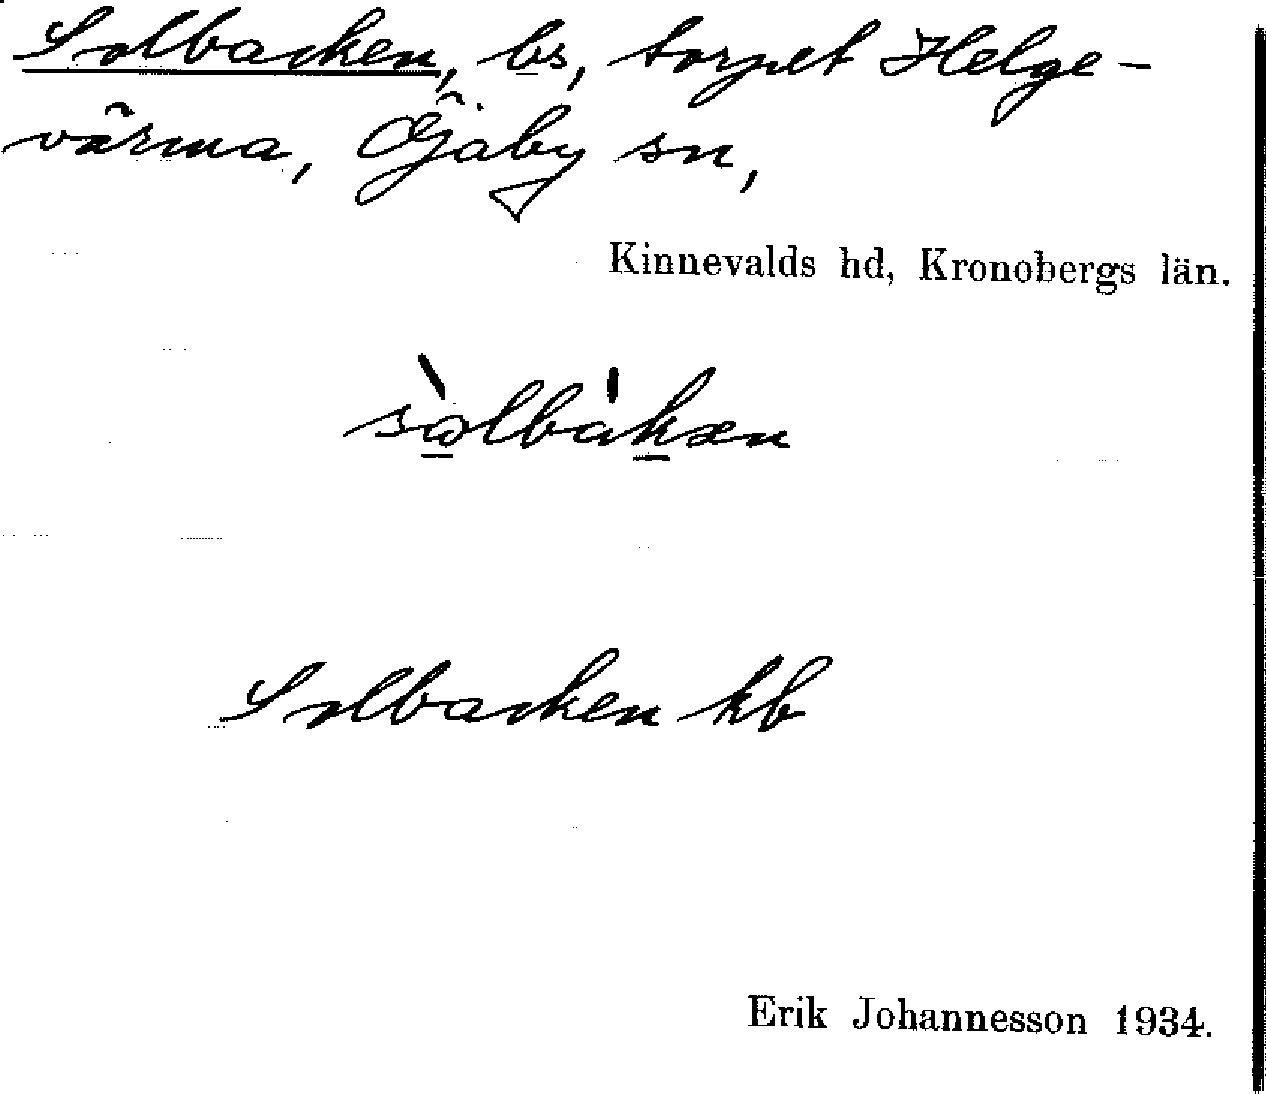 Solbacken, bs, torpet Helge-
värma, Öjaby sn,
Kinnevalds hd, Kronobergs län.
sɷ̀lbákæn
Solbacken kb
Erik Johannesson 1934.